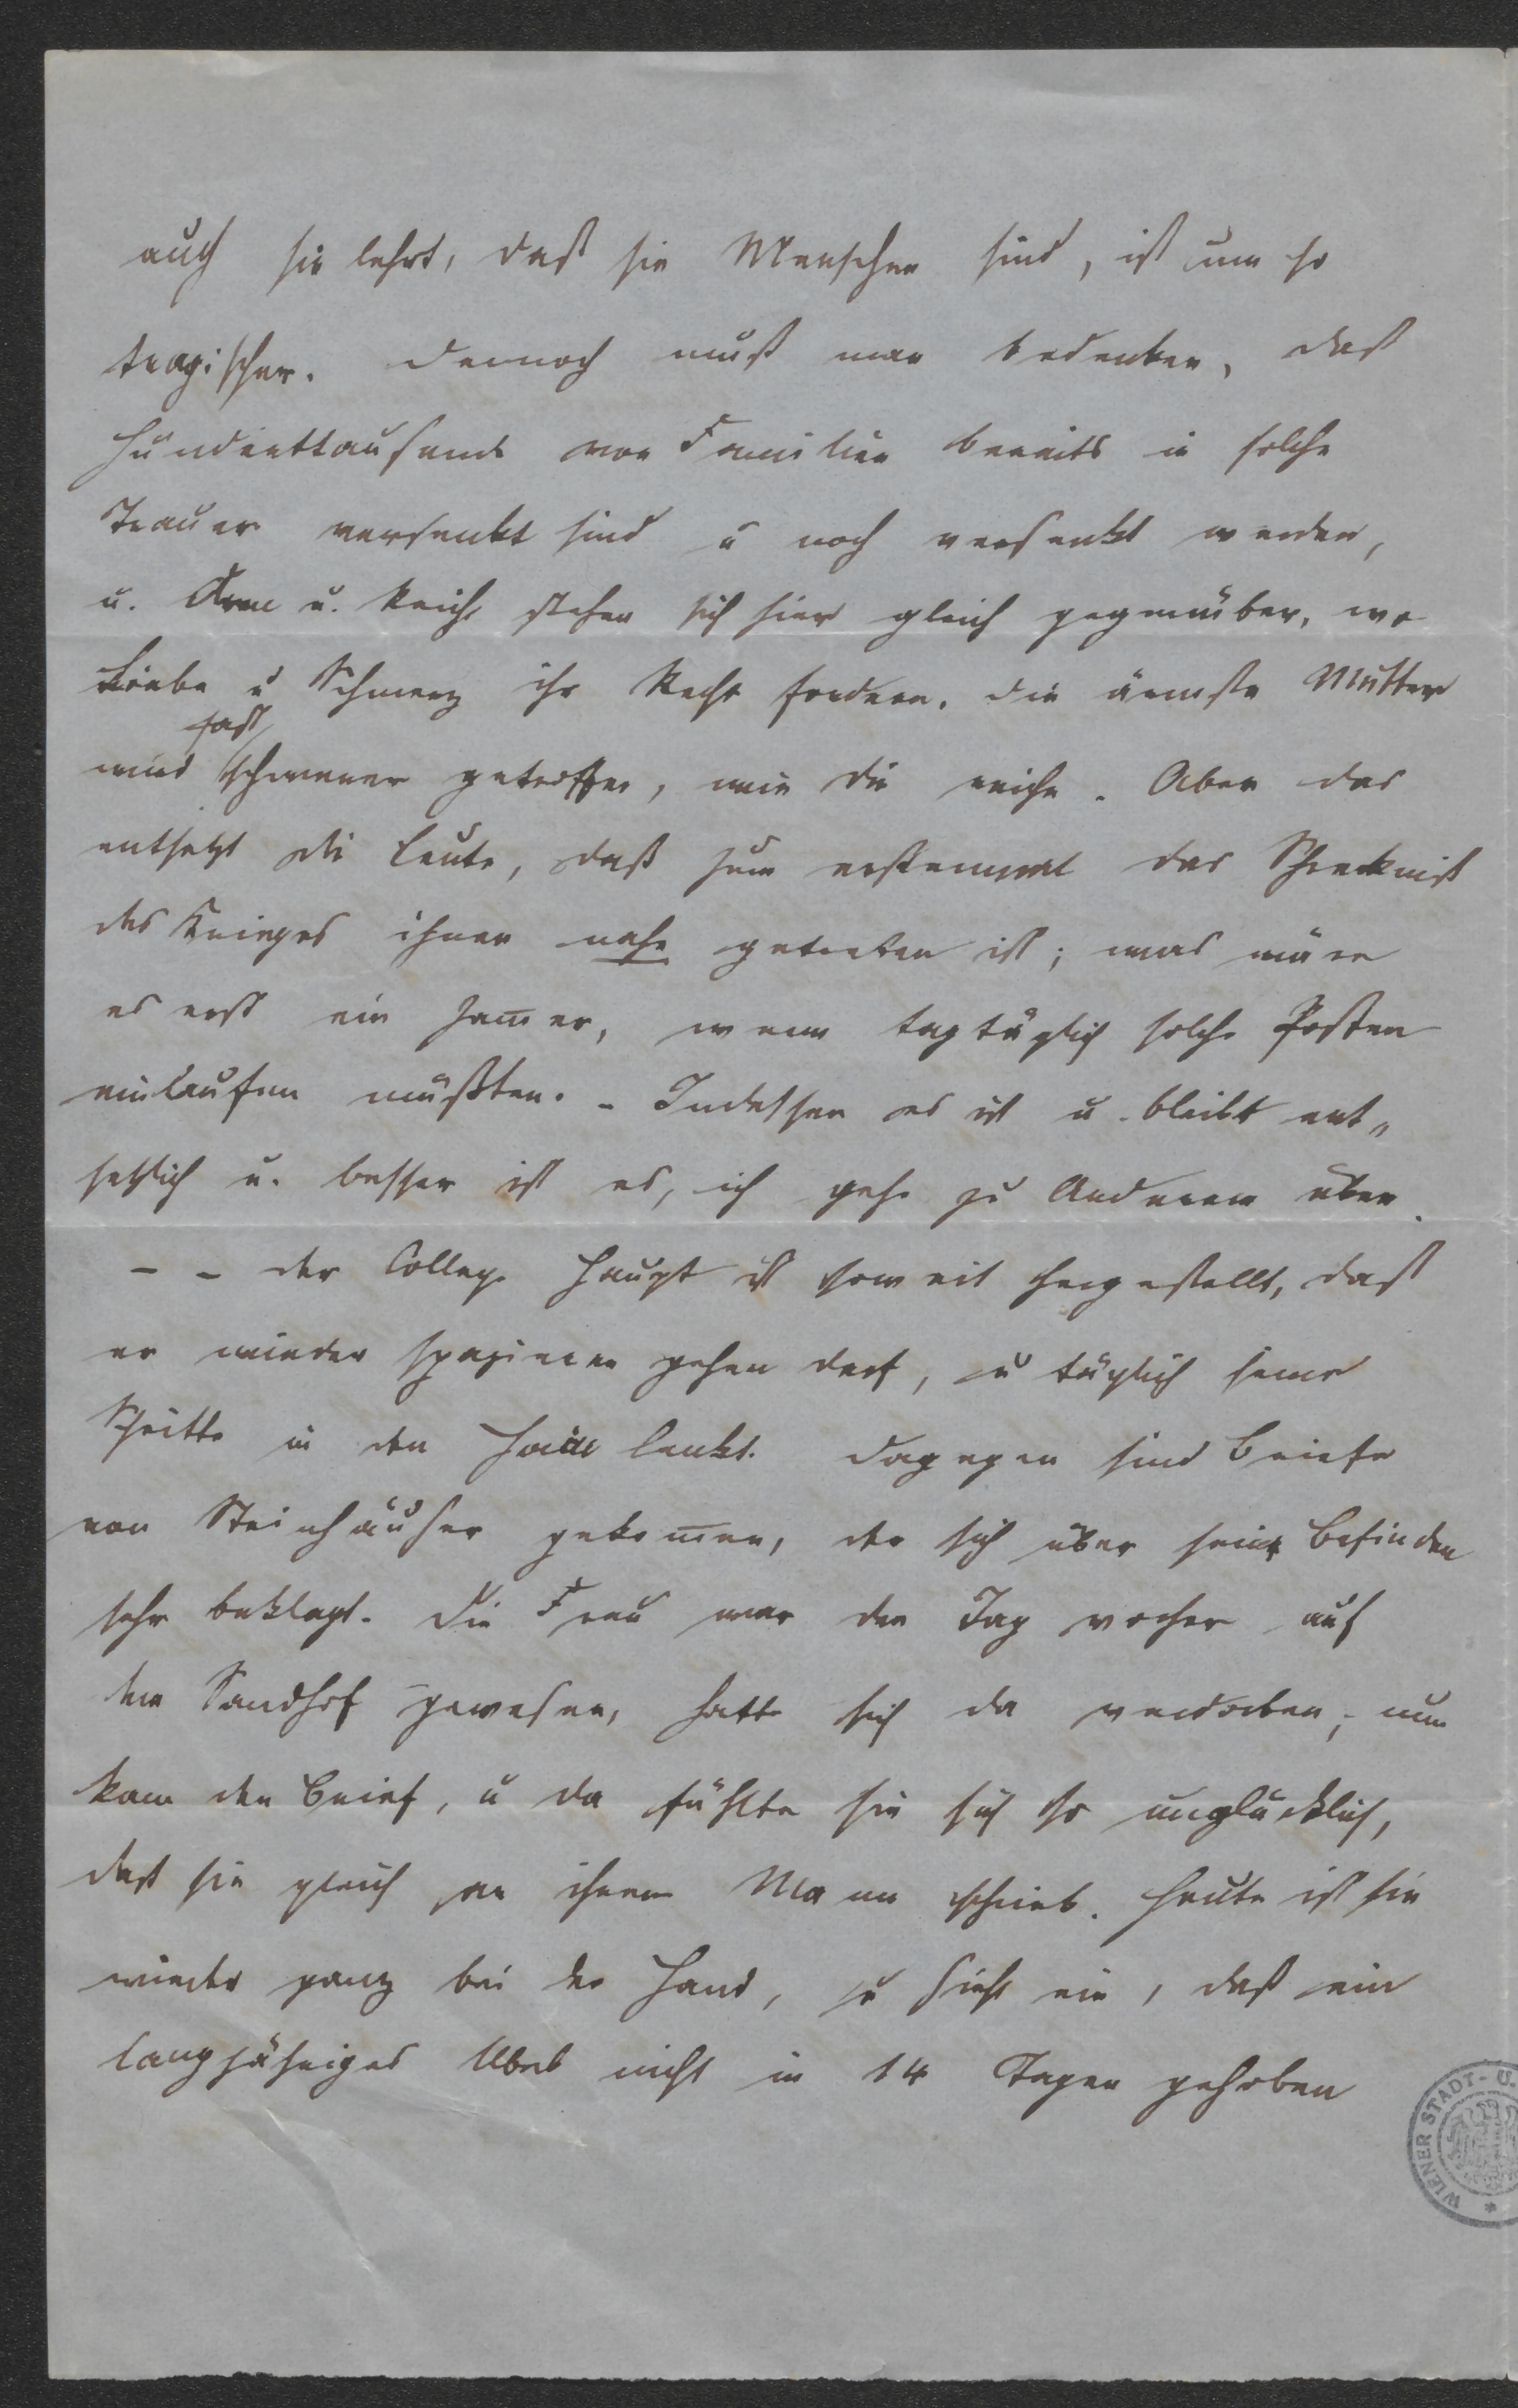 auch sie lehrt, daß sie Menschen sind, ist um so
tragischer. Dennoch muß man bedenken, daß
Hunderttausende von Familien bereits in solche
Trauer versenkt sind u noch versenkt werden,
u. Arme u. Reiche stehen sich hier gleich gegenüber, wo
Liebe u Schmerz ihr Recht fordern. Die ärmste Mutter
fast
wird schwerer getroffen, wie die reiche. Aber das
entsetzt die Leute, daß zum erstenmal das Schreckniß
des Krieges ihnen nahe getreten ist; was wäre
es erst ein Jam̅er, wenn tagtäglich solche Posten
einlaufen müßten. – Indessen es ist u. bleibt ent„
setzlich u. besser ist es, ich gehe zu Anderem über.
– – Der College Haupt ist soweit hergestellt, daß
er wieder spazieren gehen darf, u täglich seine
Schritte in den lenkt. Dagegen sind Briefe
von Steinhäuser gekom̅en, der sich über sein Befinden
sehr beklagt. Die Frau war den Tag vorher auf
dem Sandhof gewesen, hatte sich da verdorben, nun
kam der Brief, u da fühlte sie sich so unglücklich,
daß sie gleich an ihren Mann schrieb. Heute ist sie
wieder ganz bei der Hand, u sieht ein, daß ein
langjähriges Übel nicht in 14 Tagen gehoben
WIENER STADT- U.